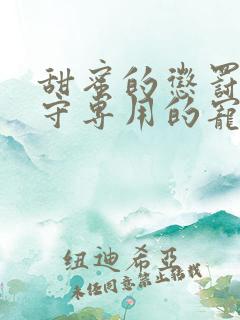 甜蜜的惩罚
守专用的宠
纽迪希亚
未经同意禁止转载